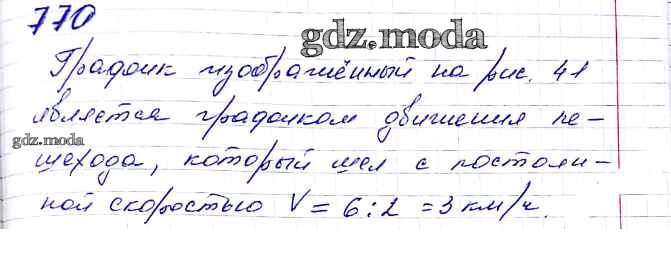 770
gdz.moda
График изображённый на рис. 41
является графиком движения пе-
gdz.moda
шехода, который шел с постоян-
ной скоростью V = 6 : 2 = 3 км/ч.